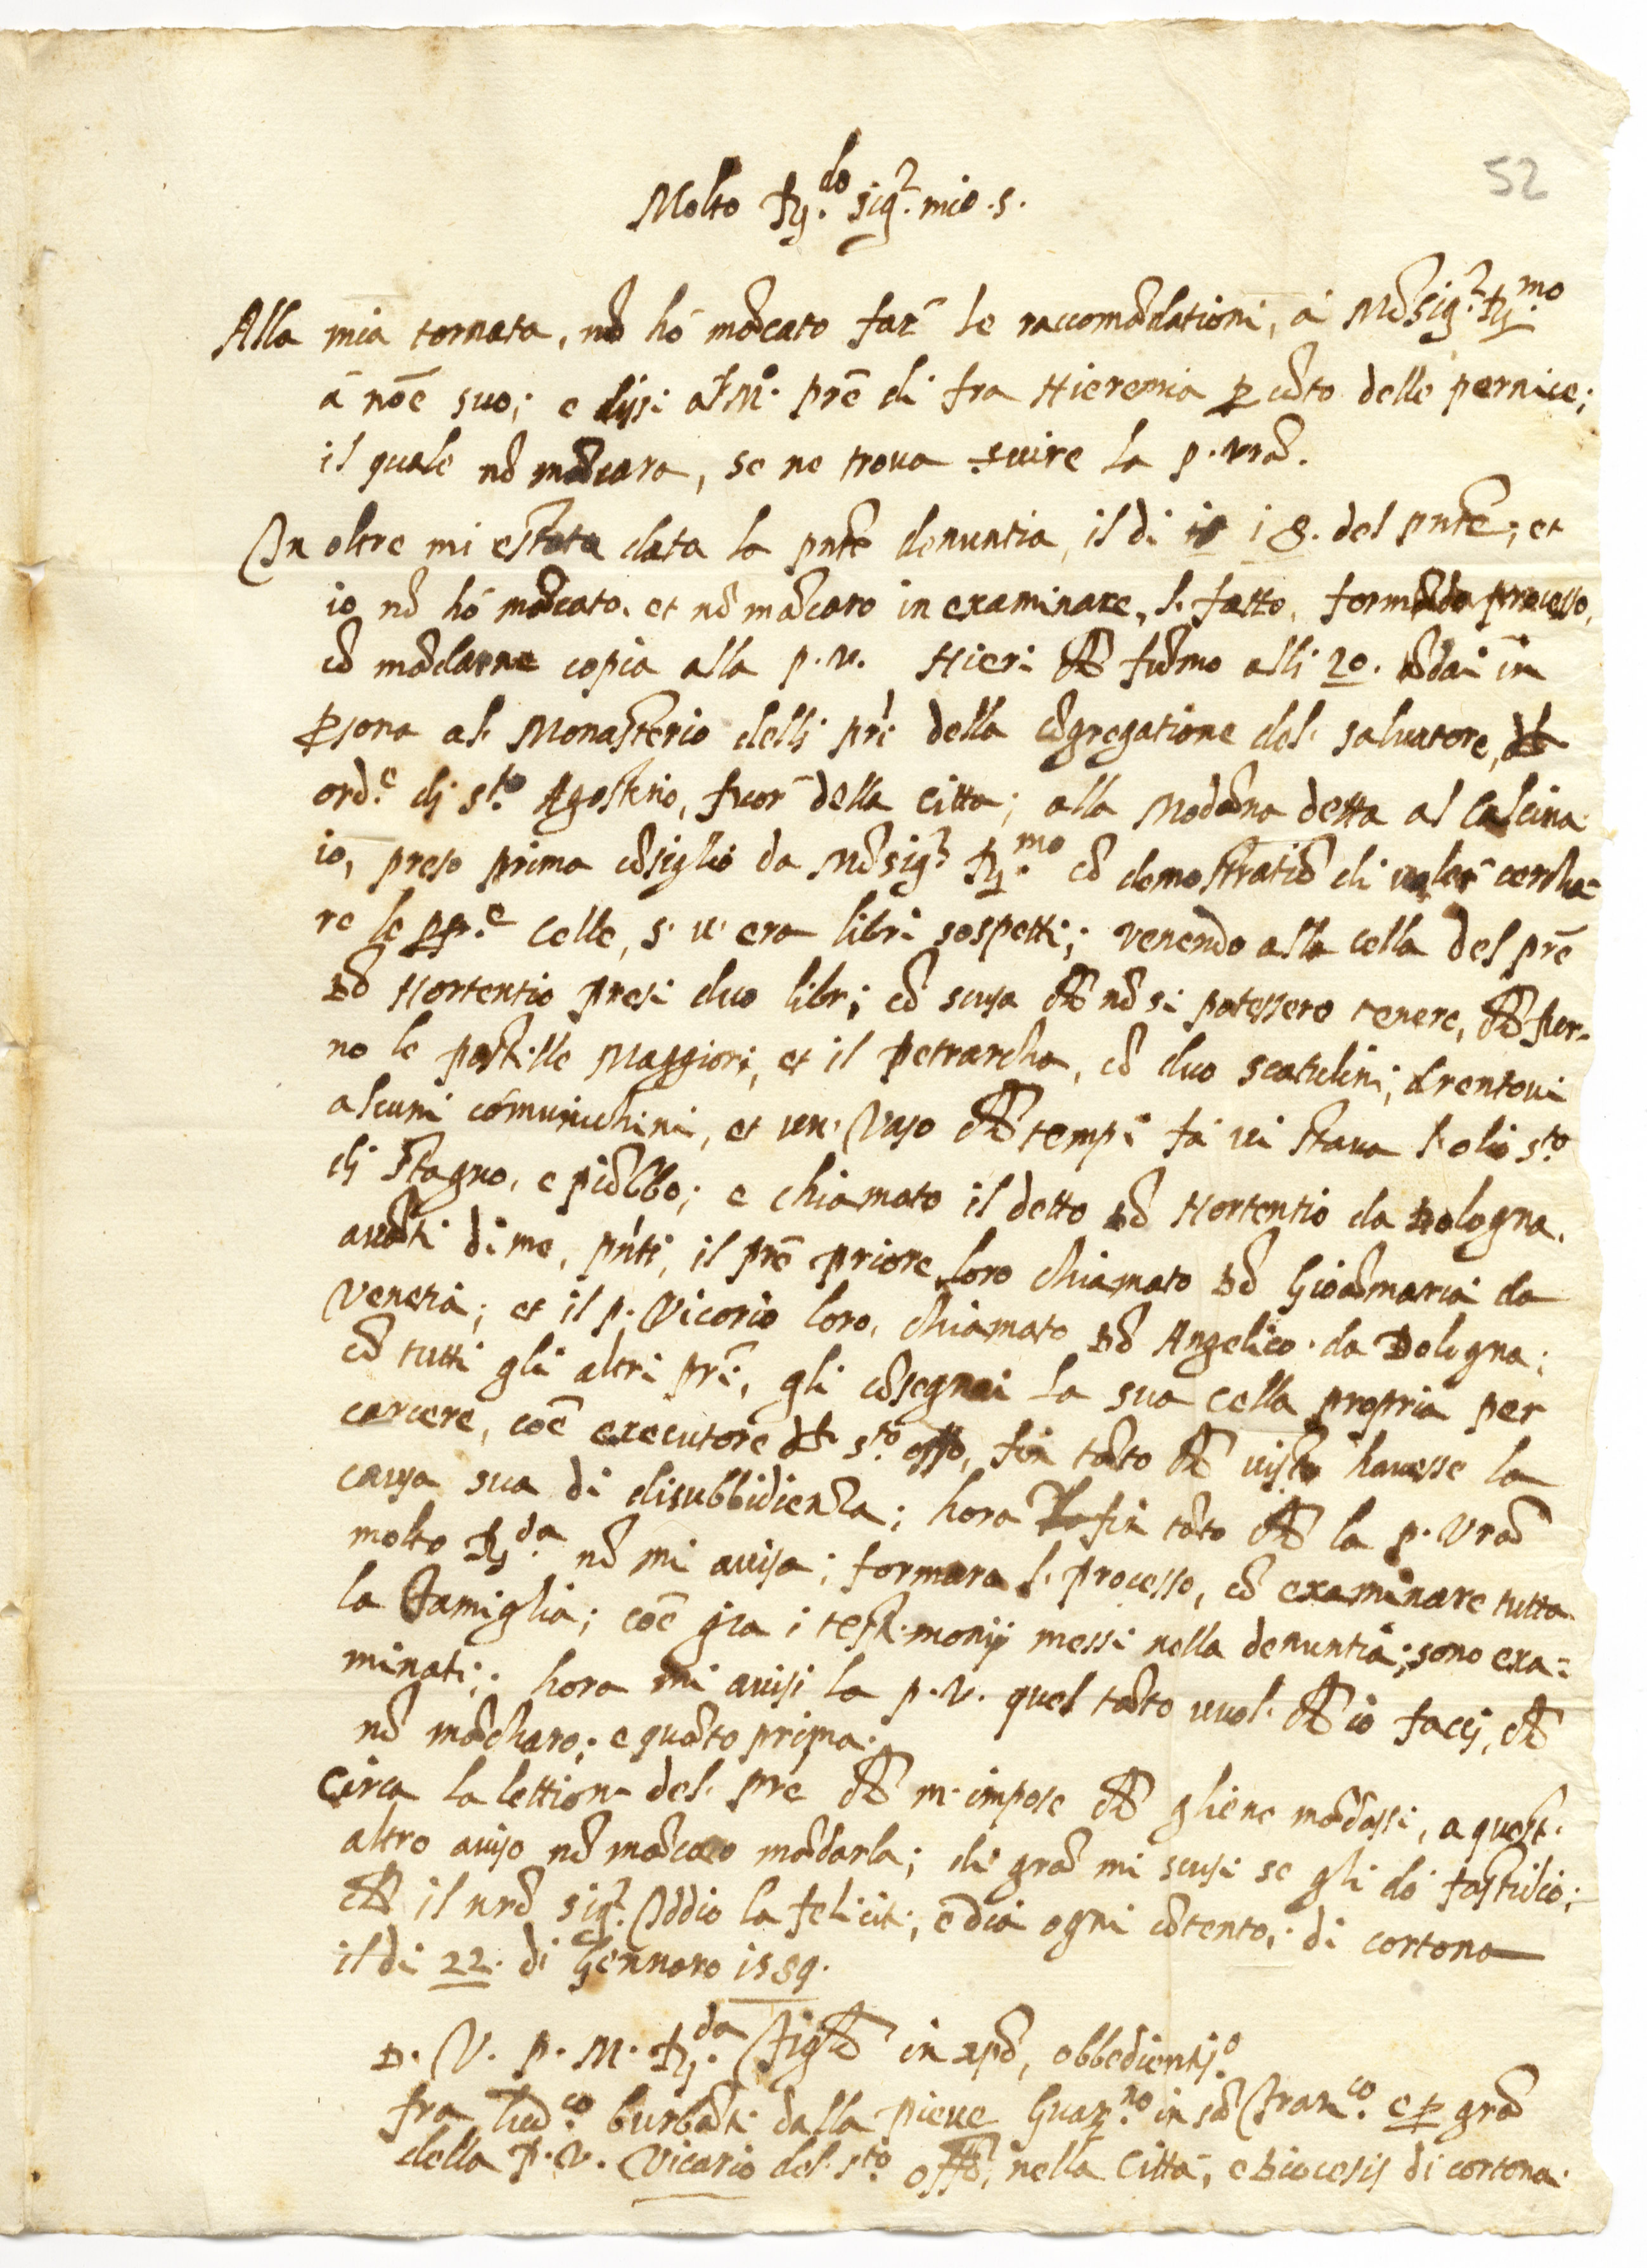 52
Molto R.do sig.r mio s.
Alla mia tornata, nō hó mācato far̄ le raccomādationi, á Mōsig.r R.mo
á nōe suo; e dissi al M.o prē di fra Hieremia ꝑ cōto delle pernice;
il quale nō mācara, se ne trova la p. vrā.
In oltre mi è stata data la pnte denuntia, il di i8. del pnte; et
io nō hó mācato. et nō mācaro in examinare, l. fatto, formādo processo,
cō mādarne copia alla p. v. Hieri chē fūmo alli 20. ādai in
ꝑsona al Monasterio delli pri della cōgregatione del salvatore,
ord.e di s.to Agostino, fuor̄ della citta; alla Madōna detta al Calcina
io, preso prima cōsiglio da Mōsig.r R.mo cō demostratiō di voler̄ cercha=
re le celle, s' v' era libri sospetti; venendo alla cella del prē
Dō Hortentio presi duo libri; cō scusa chē nō si potessero tenere, chē fur.
no le postille Maggiori, et il Petrarcha, cō duo scatulini, drentovi
alcuni comunichini, et un. Vaso chē tempi fá vi stava l. olio s.to
di stagno, e piōbbo; e chiamato il detto Dō Hortentio da Bologna.
avāti di me, pn̄ti, il prē priore loro chiamato Dō Gioāmaria da
Venetia; et il p. Vicario loro, chiamato Dō Angelico. da Bologna;
cō tutti gli altri prī, gli cōsegnai la sua cella propria per
carcere, coē executore del s.to offo, fin tāto chē visto havesse la
causa sua di disubbidienza; hora fin tāto chē la p. Vrā
molto R.da nō mi avisa; formara l. processo, cō examinare tutta
la Famiglia; coē gia i testi.monij messi nella denuntia; sono exa=
minati; hora mi avisi la p. v. quel tāto vuol. chē io facci, chē
nō mācharo; e quāto prima.
Circa la lettion del. prē chē m. impose chē gliene mādassi, a quest.
altro aviso nō mācaro mādarla; di grā mi scusi se gli dó fastidio;
chē il nrō sig.r Iddio la feliciti; e dia ogni cōtento; di cortona
il di 22. di Gennaro i589.
D. V. p. M. R.da Figlō in xpō, obbedientis.o
fra Lud.co burbāti dalla pieve Guar.no in sā Fran.co e ꝑ grā
della P. V. Vicario del s.to offō, nella Città, e Diocesis di cortona.